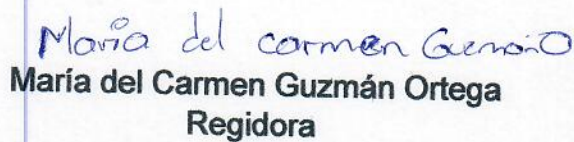 María del carmen Guzmán O
María del Carmen Guzmán Ortega
Regidora